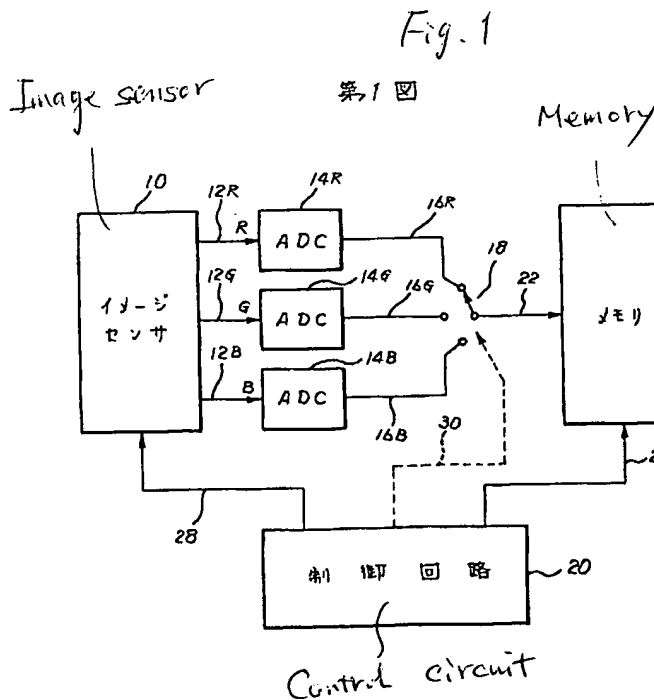 Fig. 1
第1図
Image sensor
Memory
10
12R
R
14R
ADC
16R
18
22
イメージ
センサ
12G
G
14G
ADC
16G
メモリ
12B
B
14B
ADC
16B
30
28
制御回路
20
Control circuit